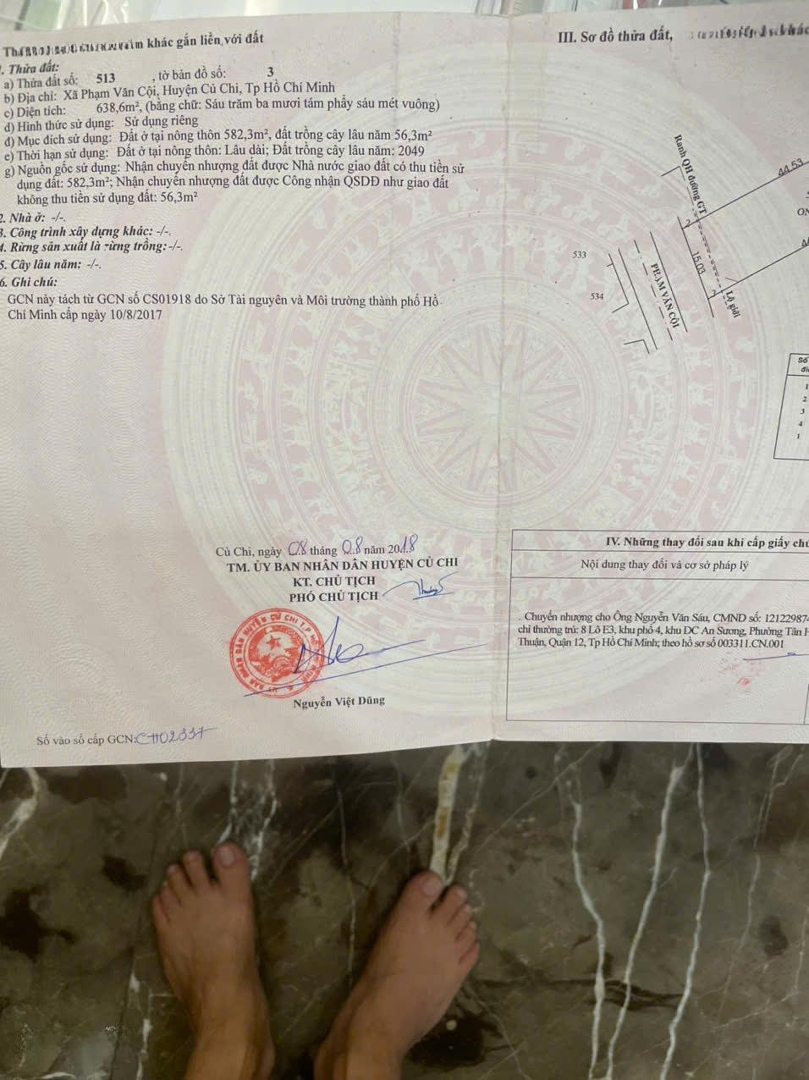 khác gắn liền với đất
1. Thửa đất:
a) Thửa đất số: 513 , tờ bản đồ số: 3
b) Địa chỉ: Xã Phạm Văn Cội, Huyện Củ Chi, Tp Hồ Chí Minh
c) Diện tích: 638,6m², (bằng chữ: Sáu trăm ba mươi tám phẩy sáu mét vuông)
d) Hình thức sử dụng: Sử dụng riêng
đ) Mục đích sử dụng: Đất ở tại nông thôn 582,3m², đất trồng cây lâu năm 56,3m²
e) Thời hạn sử dụng: Đất ở tại nông thôn: Lâu dài; Đất trồng cây lâu năm: 2049
g) Nguồn gốc sử dụng: Nhận chuyển nhượng đất được Nhà nước giao đất có thu tiền sử
dụng đất: 582,3m²; Nhận chuyển nhượng đất được Công nhận QSDĐ như giao đất
không thu tiền sử dụng đất: 56,3m²
2. Nhà ở: -/-.
3. Công trình xây dựng khác: -/-.
4. Rừng sản xuất là rừng trồng:-/-.
5. Cây lâu năm: -/-.
6. Ghi chú:
GCN này tách từ GCN số CS01918 do Sở Tài nguyên và Môi trường thành phố Hồ
Chí Minh cấp ngày 10/8/2017
Củ Chi, ngày 08 tháng 08 năm 2018
TM. ỦY BAN NHÂN DÂN HUYỆN CỦ CHI
KT. CHỦ TỊCH
PHÓ CHỦ TỊCH
Nguyễn Việt Dũng
Số vào sổ cấp GCN: CH02337
III. Sơ đồ thửa đất,
Ranh QH đường GT
44.53
2
15.03
2
Lộ giới
533
534
PHẠM VĂN CỘI
Số
1
2
3
4
1
IV. Những thay đổi sau khi cấp giấy
Nội dung thay đổi và cơ sở pháp lý
. Chuyển nhượng cho Ông Nguyễn Văn Sáu, CMND số: 12122987
chỉ thường trú: 8 Lô E3, khu phố 4, khu DC An Sương, Phường Tân
Thuận, Quận 12, Tp Hồ Chí Minh; theo hồ sơ số 003311.CN.001